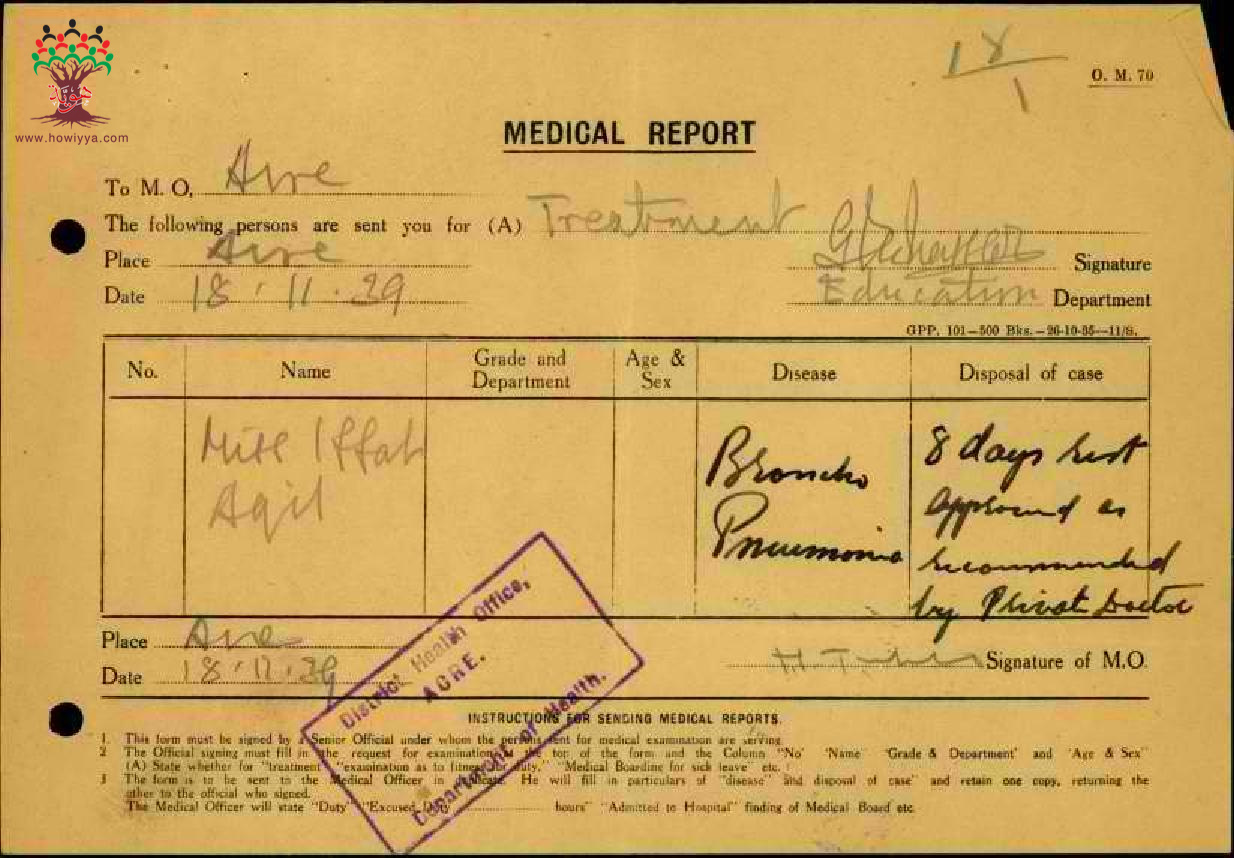 www.howiyya.com
18
1
O. M. 70
MEDICAL REPORT
To M. O, Acre
The following persons are sent you for (A) Treatment
Place Acre Signature
Date 18.11.39 Education Department
GPP. 101—500 Bks.—26-10-35—11/S.
No. Name Grade and Department Age & Sex Disease Disposal of case
Miss Iffat
Aqil
Broncho
Pneumonia
8 days rest
approved as
recommended
by Privat Doctor
Place Acre
Date 18.11.39 Signature of M.O.
District Health Office,
ACRE.
Department of Health.
INSTRUCTIONS FOR SENDING MEDICAL REPORTS.
1. This form must be signed by a Senior Official under whom the persons sent for medical examination are serving
2 The Official signing must fill in the request for examination at the top of the form and the Column "No" 'Name' 'Grade & Department' and 'Age & Sex"
(A) State whether for "treatment" "examination as to fitness for duty," "Medical Boarding for sick leave" etc.
3 The form is to be sent to the Medical Officer in He will fill in particulars of "disease" and disposal of case" and retain one copy, returning the
other to the official who signed.
The Medical Officer will state "Duty" "Excused Duty hours" "Admitted to Hospital" finding of Medical Board etc.